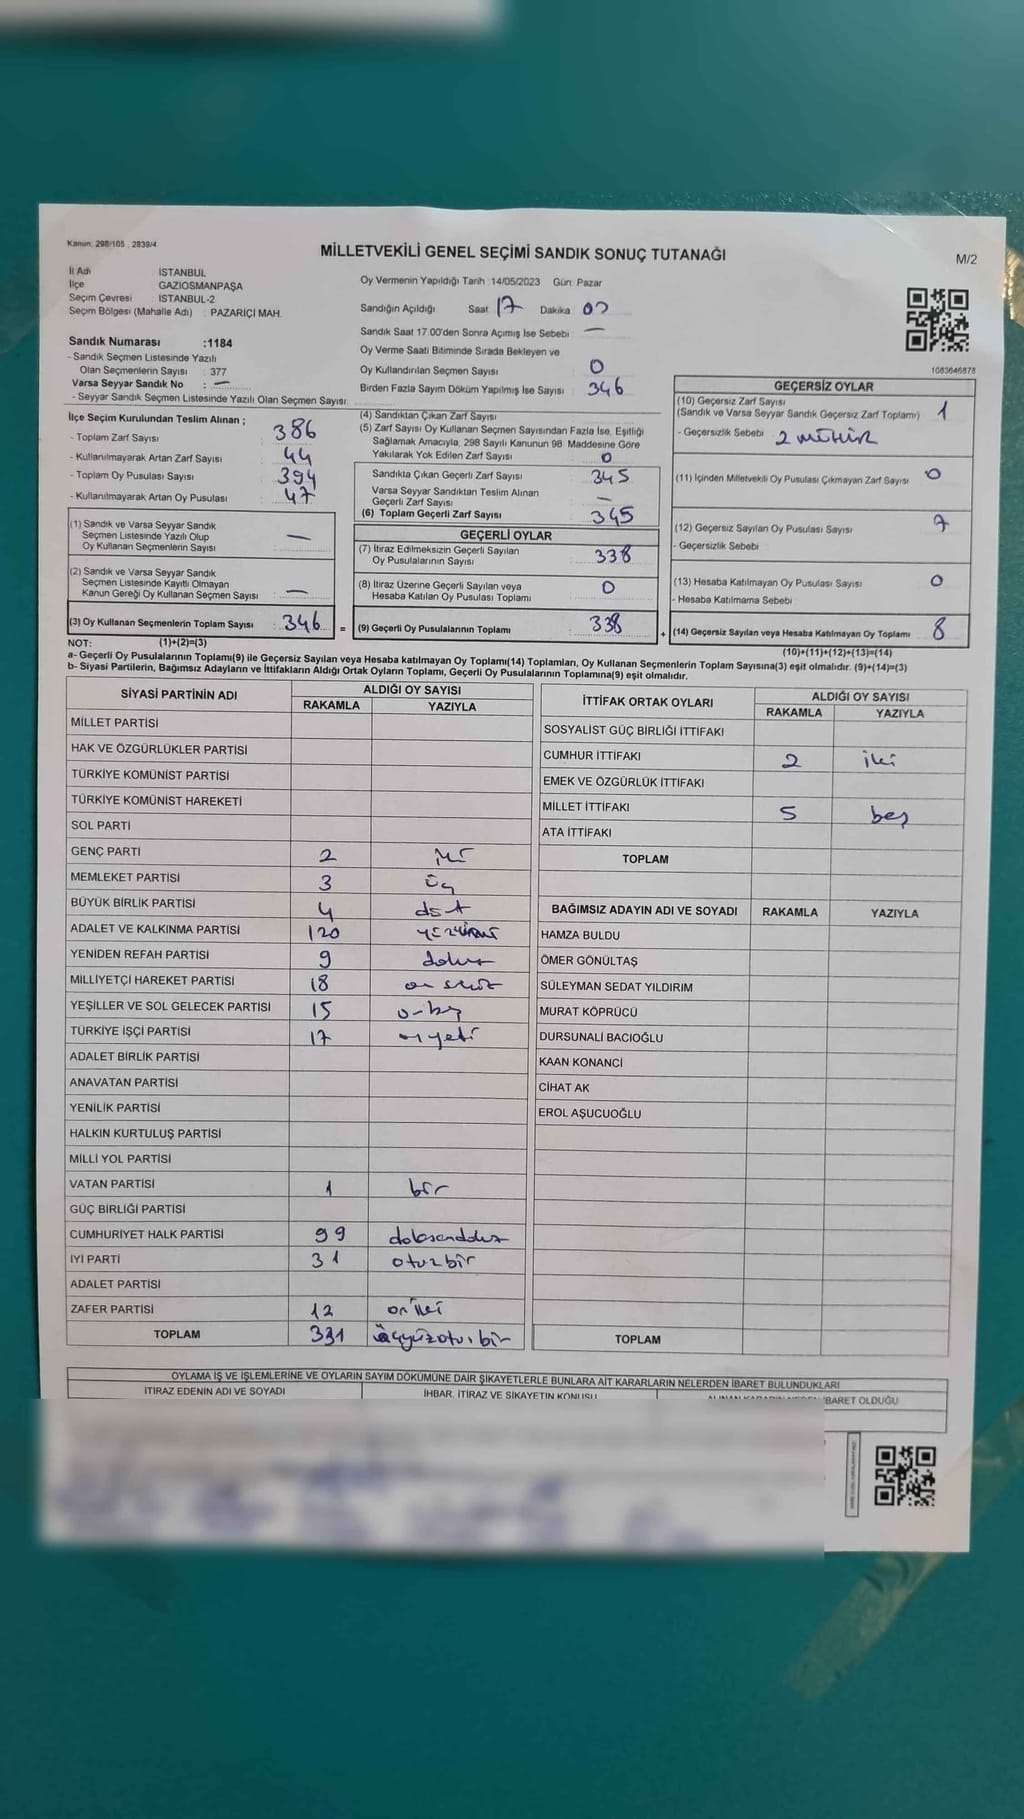 Kanun: 298/105 , 2839/4
MİLLETVEKİLİ GENEL SEÇİMİ SANDIK SONUÇ TUTANAĞI
M/2
İl Adı İSTANBUL
İlçe GAZİOSMANPAŞA
Seçim Çevresi İSTANBUL-2
Seçim Bölgesi (Mahalle Adı) : PAZARİÇİ MAH.
Sandık Numarası :1184
- Sandık Seçmen Listesinde Yazılı
Olan Seçmenlerin Sayısı : 377
Varsa Seyyar Sandık No : —
- Seyyar Sandık Seçmen Listesinde Yazılı Olan Seçmen Sayısı:
Oy Vermenin Yapıldığı Tarih :14/05/2023 Gün: Pazar
Sandığın Açıldığı Saat 17 Dakika 00
Sandık Saat 17.00'den Sonra Açımış İse Sebebi : —
Oy Verme Saati Bitiminde Sırada Bekleyen ve
Oy Kullandırılan Seçmen Sayısı : 0
Birden Fazla Sayım Döküm Yapılmış İse Sayısı : 346
1083646878
İlçe Seçim Kurulundan Teslim Alınan ;
- Toplam Zarf Sayısı : 386
- Kullanılmayarak Artan Zarf Sayısı : 44
- Toplam Oy Pusulası Sayısı : 394
- Kullanılmayarak Artan Oy Pusulası : 47
(1) Sandık ve Varsa Seyyar Sandık
Seçmen Listesinde Yazılı Olup
Oy Kullanan Seçmenlerin Sayısı : —
(2) Sandık ve Varsa Seyyar Sandık
Seçmen Listesinde Kayıtlı Olmayan
Kanun Gereği Oy Kullanan Seçmen Sayısı : —
(3) Oy Kullanan Seçmenlerin Toplam Sayısı : 346 =
(4) Sandıktan Çıkan Zarf Sayısı :
(5) Zarf Sayısı Oy Kullanan Seçmen Sayısından Fazla İse, Eşitliği
Sağlamak Amacıyla, 298 Sayılı Kanunun 98. Maddesine Göre
Yakılarak Yok Edilen Zarf Sayısı : 0
Sandıkta Çıkan Geçerli Zarf Sayısı : 345
Varsa Seyyar Sandıktan Teslim Alınan
Geçerli Zarf Sayısı : —
(6) Toplam Geçerli Zarf Sayısı : 345
GEÇERLİ OYLAR
(7) İtiraz Edilmeksizin Geçerli Sayılan
Oy Pusulalarının Sayısı : 338
(8) İtiraz Üzerine Geçerli Sayılan veya
Hesaba Katılan Oy Pusulası Toplamı : 0
(9) Geçerli Oy Pusulalarının Toplamı : 338 +
GEÇERSİZ OYLAR
(10) Geçersiz Zarf Sayısı
(Sandık ve Varsa Seyyar Sandık Geçersiz Zarf Toplamı) : 1
- Geçersizlik Sebebi : 2 MÜHÜR
(11) İçinden Milletvekili Oy Pusulası Çıkmayan Zarf Sayısı : 0
(12) Geçersiz Sayılan Oy Pusulası Sayısı : 7
- Geçersizlik Sebebi :
(13) Hesaba Katılmayan Oy Pusulası Sayısı : 0
- Hesaba Katılmama Sebebi :
(14) Geçersiz Sayılan veya Hesaba Katılmayan Oy Toplamı : 8
NOT: (1)+(2)=(3) (10)+(11)+(12)+(13)=(14)
a- Geçerli Oy Pusulalarının Toplamı(9) ile Geçersiz Sayılan veya Hesaba katılmayan Oy Toplamı(14) Toplamları, Oy Kullanan Seçmenlerin Toplam Sayısına(3) eşit olmalıdır. (9)+(14)=(3)
b- Siyasi Partilerin, Bağımsız Adayların ve İttifakların Aldığı Ortak Oyların Toplamı, Geçerli Oy Pusulalarının Toplamına(9) eşit olmalıdır.
SİYASİ PARTİNİN ADI ALDIĞI OY SAYISI
RAKAMLA YAZIYLA
MİLLET PARTİSİ
HAK VE ÖZGÜRLÜKLER PARTİSİ
TÜRKİYE KOMÜNİST PARTİSİ
TÜRKİYE KOMÜNİST HAREKETİ
SOL PARTİ
GENÇ PARTİ 2 iki
MEMLEKET PARTİSİ 3 üç
BÜYÜK BİRLİK PARTİSİ 4 dört
ADALET VE KALKINMA PARTİSİ 120 yüzyirmi
YENİDEN REFAH PARTİSİ 9 dokuz
MİLLİYETÇİ HAREKET PARTİSİ 18 on sekiz
YEŞİLLER VE SOL GELECEK PARTİSİ 15 onbeş
TÜRKİYE İŞÇİ PARTİSİ 17 onyedi
ADALET BİRLİK PARTİSİ
ANAVATAN PARTİSİ
YENİLİK PARTİSİ
HALKIN KURTULUŞ PARTİSİ
MİLLİ YOL PARTİSİ
VATAN PARTİSİ 1 bir
GÜÇ BİRLİĞİ PARTİSİ
CUMHURİYET HALK PARTİSİ 99 doksandokuz
İYİ PARTİ 31 otuzbir
ADALET PARTİSİ
ZAFER PARTİSİ 12 oniki
TOPLAM 331 üçyüzotuzbir
İTTİFAK ORTAK OYLARI ALDIĞI OY SAYISI
RAKAMLA YAZIYLA
SOSYALİST GÜÇ BİRLİĞİ İTTİFAKI
CUMHUR İTTİFAKI 2 iki
EMEK VE ÖZGÜRLÜK İTTİFAKI
MİLLET İTTİFAKI 5 beş
ATA İTTİFAKI
TOPLAM
BAĞIMSIZ ADAYIN ADI VE SOYADI RAKAMLA YAZIYLA
HAMZA BULDU
ÖMER GÖNÜLTAŞ
SÜLEYMAN SEDAT YILDIRIM
MURAT KÖPRÜCÜ
DURSUNALİ BACIOĞLU
KAAN KONANCİ
CİHAT AK
EROL AŞUCUOĞLU
TOPLAM
OYLAMA İŞ VE İŞLEMLERİNE VE OYLARIN SAYIM DÖKÜMÜNE DAİR ŞİKAYETLERLE BUNLARA AİT KARARLARIN NELERDEN İBARET BULUNDUKLARI
İTİRAZ EDENİN ADI VE SOYADI İHBAR, İTİRAZ VE ŞİKAYETİN KONUSU İBARET OLDUĞU